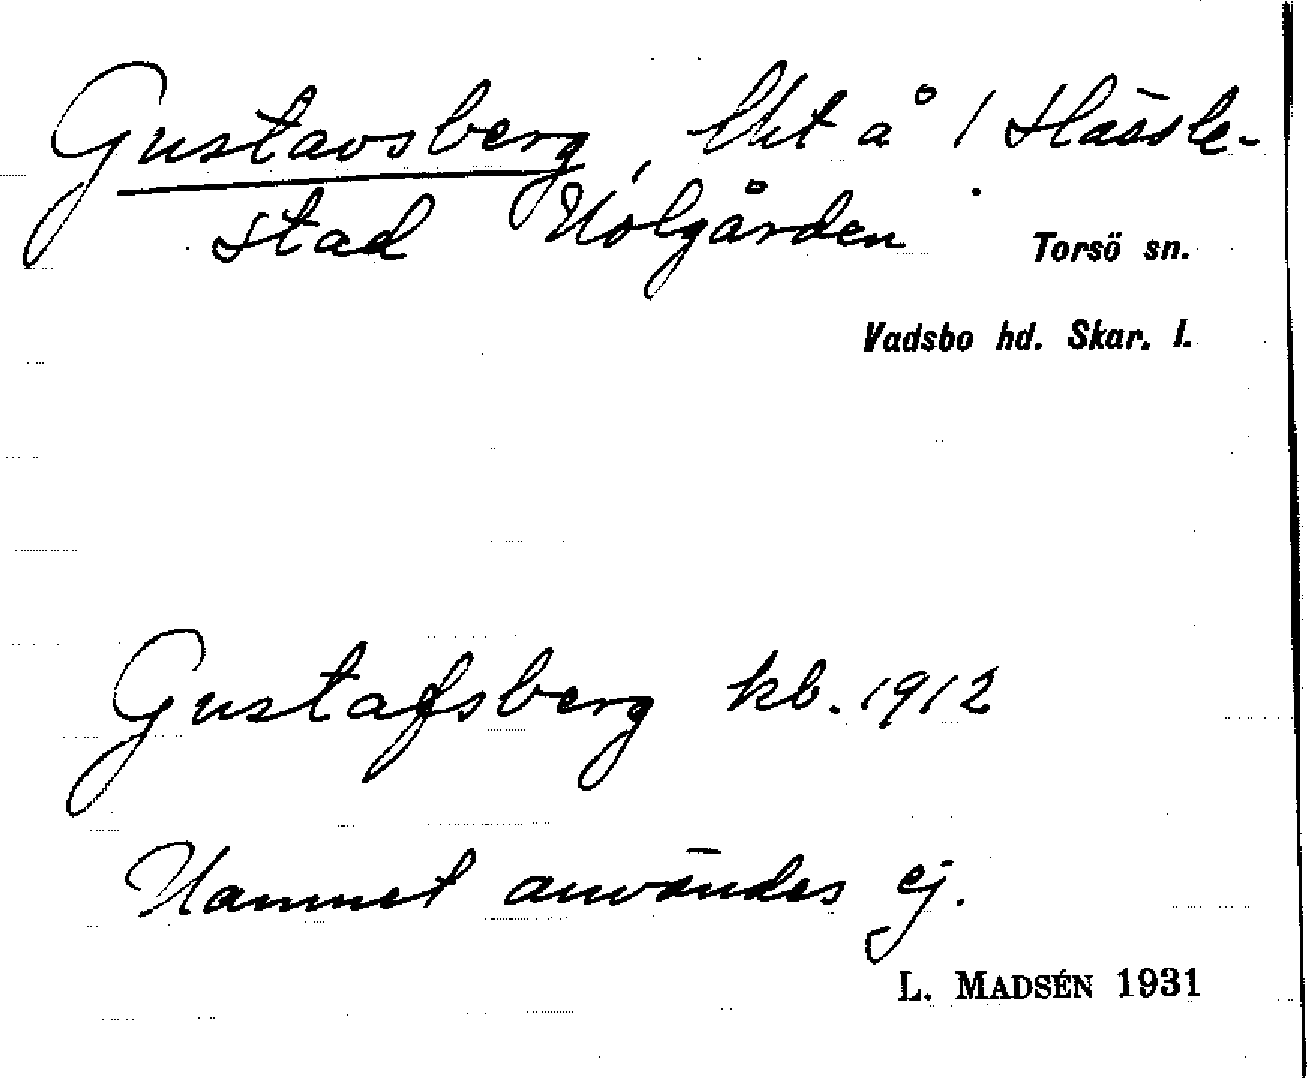 Gustavsberg, lht å 1 Hässle-
stad Nolgården
Torsö sn.
Vadsbo hd. Skar. l.
Gustafsberg kb. 1912
Namnet användes ej.
L. MADSÉN 1931